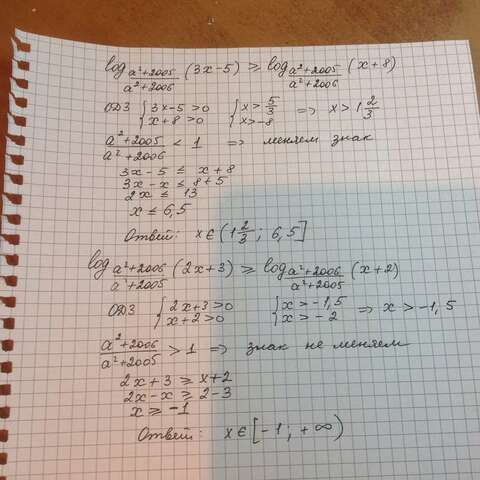 log_{(a²+2005)/(a²+2006)} (3x-5) ≥ log_{(a²+2005)/(a²+2006)} (x+8)
ОДЗ { 3x-5>0 { x>5/3 ⇒ x>1 2/3
x+8>0 x>-8
(a²+2005)/(a²+2006) < 1 ⇒ меняем знак
3x-5 ≤ x+8
3x-x ≤ 8+5
2x ≤ 13
x ≤ 6,5
Ответ: x∈(1 2/3; 6,5]
log_{(a²+2006)/(a²+2005)} (2x+3) ≥ log_{(a²+2006)/(a²+2005)} (x+2)
ОДЗ { 2x+3>0 { x>-1,5 ⇒ x>-1,5
x+2>0 x>-2
(a²+2006)/(a²+2005) > 1 ⇒ знак не меняем
2x+3 ≥ x+2
2x-x ≥ 2-3
x ≥ -1
Ответ: x∈[-1; +∞)